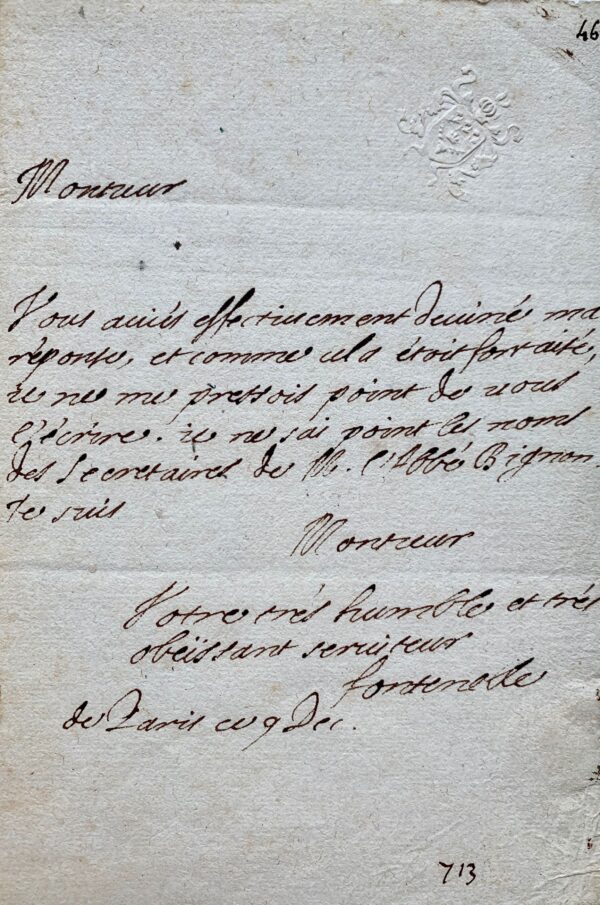 46
Monsieur
Vous aviés effectivement deviné ma
réponse, et comme cela étoit fort aisé,
je ne me pressois point de vous
l'écrire. je ne sai point les noms
des secretaires de M. l'Abbé Bignon.
Je suis
Monsieur
Votre trés humble et trés
obéissant serviteur
fontenelle
de Paris ce 9 Dec.
713